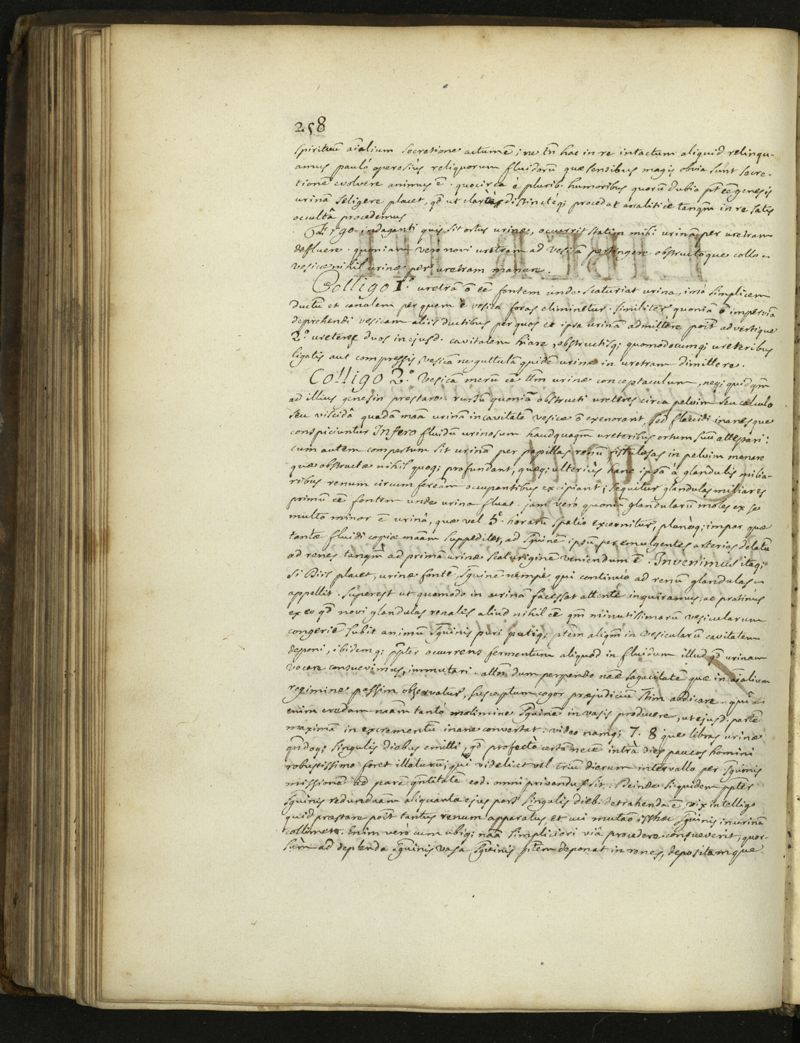 258
spirituũ aĩalium secretione actum ẽ; ne tñ hac in re intactum aliquid relinqu-
amus pauló operosius reliquorum fluidorũ quæ sensibus magis obvia sunt secre-
tionẽ evolvere animus ẽ. quocirca e plurib. humoribus quorũ dubia pt eẽ genesis
urinã seligere placet, qd ut clariùs distinctèq; procedat analitice tanqm̃ in re satis
occultâ procedemus
indaganti quis sit ortus urinæ, occurrit statim mihi urinã per uretram
defluere. quoniam verò novi uretram ad vesicã pertingere obstructoque collo
vesicæ nihil urinæ per uretram manare.
Colligo 1º. uretrã õ eẽ fontem unde scaturiat urina, imò simplicem
ductũ et canalem per quem è vesicâ foras eliminetur. similiter quoniã õ impervia
deprehendi vesicam aliis ductibus per quos eẽ ipsa urinã admittere poss̃it advertique
2º ureteres duos in ejusd. cavitalem hiare, obstructisq; quomodocumq; ureteribus
ligatis aut compressis vesicã ne guttulã quidẽ urinæ in uretram dimittere.
Colligo 2º. vesicã merũ eẽ tm̃ urinæ conceptaculum, neq; quidqm̃
ad illius genesin præstare. rursũ quoniã obstructi ureteres circa pelvim seu calculo
seu viscidâ quadã maã urinã in cavitatẽ vesicæ õ exonerant, sed flaccidi inanesque
conspiciuntur Infero fluidũ urinosum haudquaqm̃ ureteribus ortum suũ attestari:
cum autem compertum sit urinã per papillas renũ fistulosas in pelvim manare
quæ obstructæ nihil quoq; profundant, quæq; ulteriùs hanc ipsã à glandulis milia-
ribus renum circumferẽam occupantibus excipiant; sequitur glandulas miliares
primũ eẽ fontem unde urina fluat. jam verò quoniã glandularũ moles ex se
multò minor ẽ urinâ, quæ vel 5. horarũ spatio excernitur, planèq; impar quæ
tantæ fluidi copiæ maãm suppeditet, ad sguinẽ ipsũ per emulgentes arterias delatũ
ad renes tanqm̃ ad primã urinæ scaturiginẽ veniendum ẽ. Invenimus itaq;
si Diis placet, urinæ fontẽ sguinẽ nempè qui continuò ad renũ glandulas
appellit. superest ut quomodo in urinã facessat attentè inquiramus; ac protinus
ex eo qd novi glandulas renalis aliud nihil eẽ qm̃ minutissimarũ vesicularum
congeriẽ subit animũ sguinis puri putiq; ptem aliqm̃ in vesicularũ cavitatem
deponi, ibidemq; ppter occurrens fermentum aliquod in fluidum illud qd urinam
vocare consuevimus, immutari. attñ dum perpendo naæ sagacitatẽ quæ in aĩalium
regimine passim observatur, susceptum cogor præjudiciũ stim abdicare. quî
enim credam naãm tantò molimine sguinẽ in vasis producere, ut ejusd. partẽ
maximã in excrementũ inane convertat: video namq; 7. 8 que libras urinæ
qndoq; singulis diebus emitti, qd profectò certã necẽ intra dies paucos homini
robustissimo foret illaturũ; qui videlicet vel triũ dierum intervallo per sguinis
missionẽ ad parẽ qntitatẽ eod. omni privandus sit. Deinde si quidem ppter
sguinis redundaãm aliquanta ejus pars singulis dieb. detrahenda ẽ vix intelligo
quid præstare poss̃it tantus renum apparatus et cui mutao isthæc sguinis in urinã
collimet. Enim verò cum ubiq; naã simpliciori viâ procedere consueverit, quor-
sum ad deplenda sguinis vasa sguinis ptem deponat in renes, depositamque